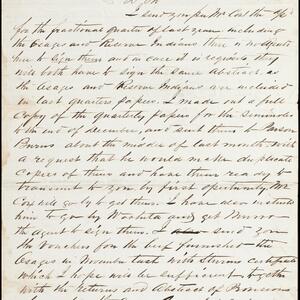 I send you per Mr Cox the a/c
for the fractional quarter of last year including
the Osages and Reserve Indians there is no agents
there to sign them and in case it is required, they
will both have to sign the same Abstract as
the Osages and Reserve Indians are included
in last quarters papers. I made out a full
Copy of the quarterly papers for the Seminoles
to the end of december, and sent them to Parson
Burns about the middle of last month with
a request that he would make duplicate
Copies of them and have them ready to
transmit to you by first opertunity. Mr
Cox will go by to get them. I have also instructed
him to go by and get
the agent to sign them. I send you
the Vouchers for the beef furnished the
Osages in with certificate
which I hope will be sufficient to gether
with the returns and Abstract of Provisions